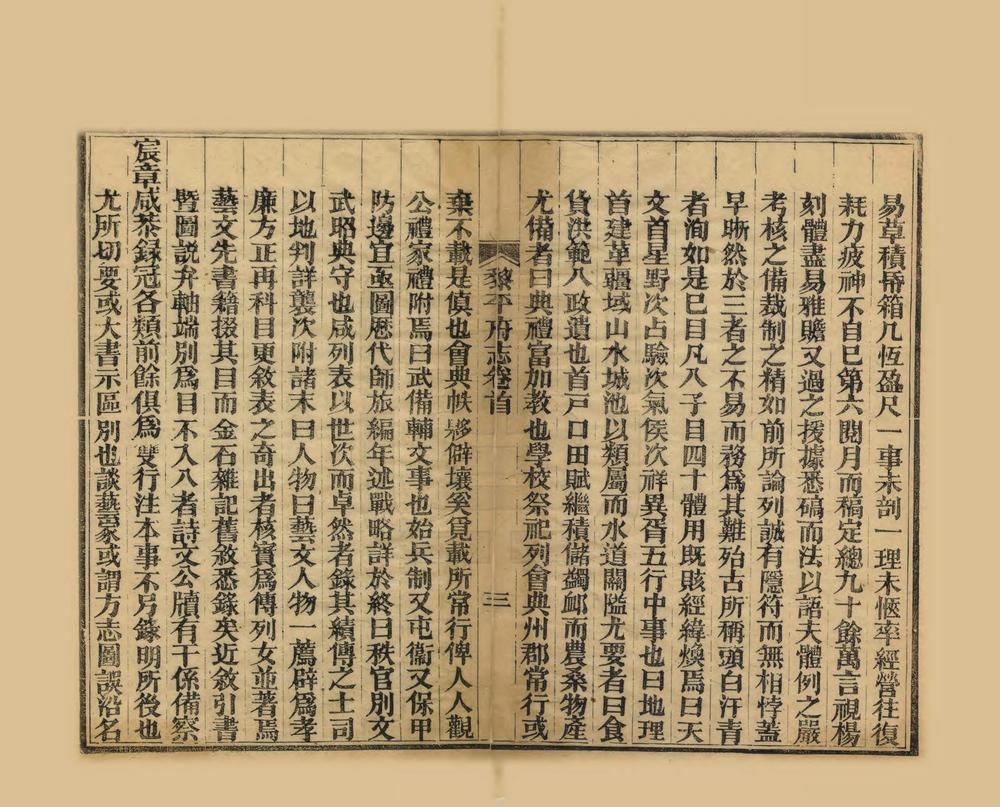 易草積昏箱几恆盈尺一事未剖一理未愜率經營往復
耗力疲神不自已第六閱月而稿定總九十餘萬言視楊
刻體盡易雅贍又過之援據悉碻而法以語夫體例之嚴
考核之備裁制之精如前所論列誠有隱符而無相悖蓋
早晣然於三者之不易而務爲其難殆古所稱頭白汗青
者洵如是已目凡八子目四十體用既賅經緯煥焉曰天
文首星野次占驗次氣侯次祥異胥五行中事也曰地理
首建革疆域山水城池以類屬而水道關隘尤要者曰食
貨洪範八政遺也首戸口田賦繼積儲蠲卹而農桑物產
尤備者曰典禮富加教也學校祭祀列會典州郡常行或
黎平府志卷首 三
棄不載是傎也會典帙夥僻壤奚覓載所常行俾人人觀
公禮家禮附焉曰武備輔文事也始兵制又屯衞又保甲
防邊宜亟圖歷代師旅編年述戰略詳於終曰秩官別文
武昭典守也咸列表以世次而卓然者錄其績傳之土司
以地判詳襲次附諸末曰人物曰藝文人物一薦辟爲孝
廉方正再科目更敘表之奇出者核實爲傳列女並著焉
藝文先書籍掇其目而金石雜記舊敘悉錄矣近敘引書
曁圖說弁軸端別爲目不入八者詩文公牘有干係備察
宸章咸恭録冠各類前餘俱爲雙行注本事不另錄明所後也
尤所切要或大書示區別也談藝家或謂方志圖說沿名